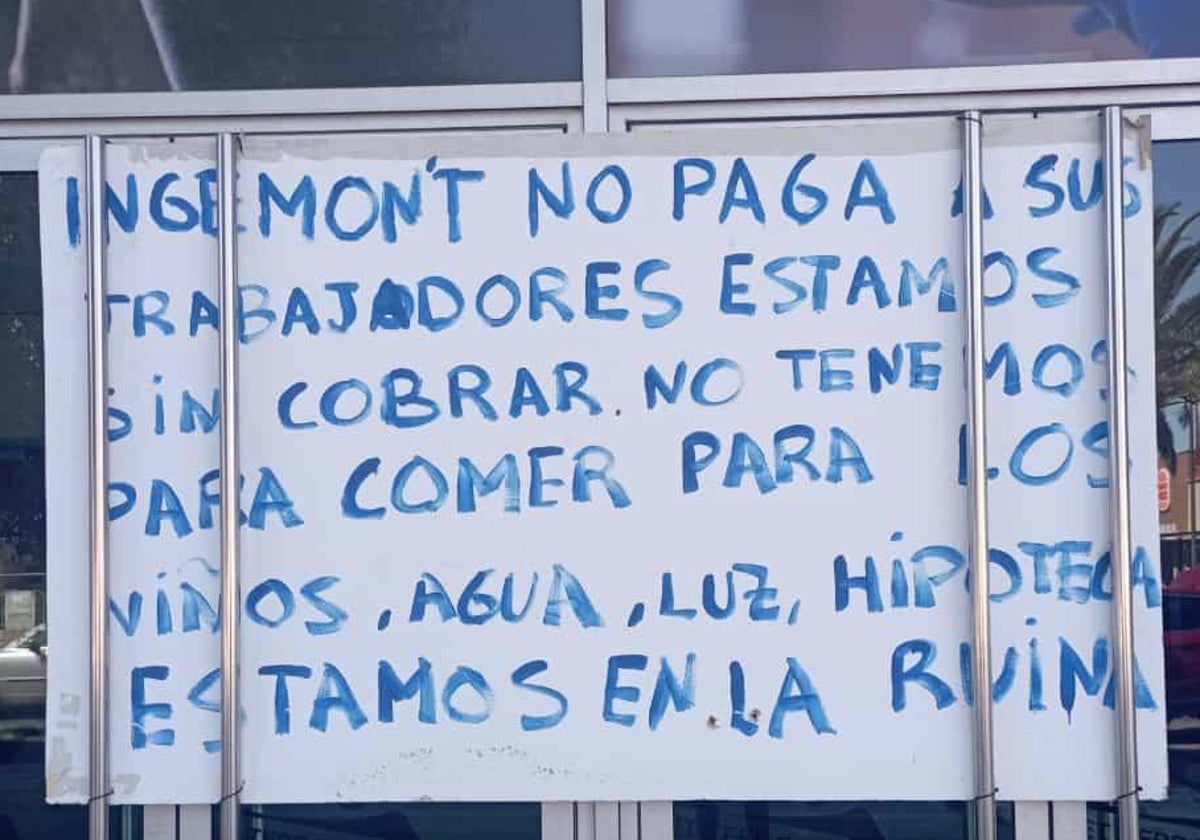 INGEMON'T NO PAGA A SUS
TRABAJADORES ESTAMOS
SiN COBRAR. NO TENEMOS
PARA COMER PARA LOS
NiÑOS, AGUA, LUZ, HiPOTECA
ESTAMOS EN LA RUiNA